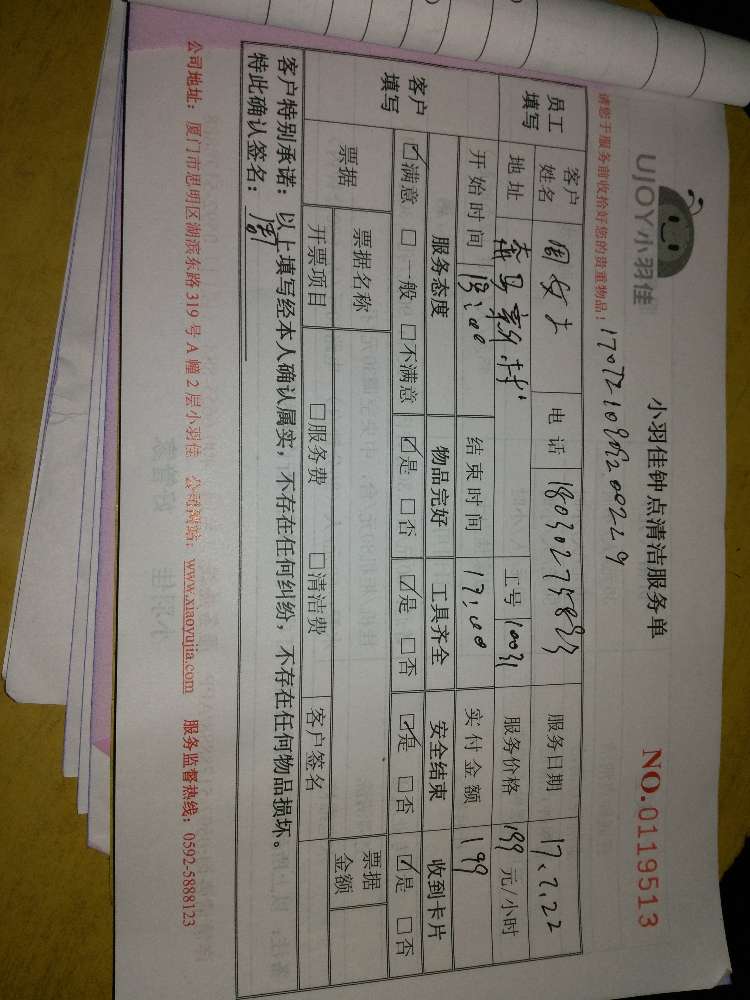 UJOY小羽佳
小羽佳钟点清洁服务单
NO.0119513
请您于服务前收拾好您的贵重物品!
员工填写 客户姓名 周女士 电话 服务日期 17.7.22
地址 工号 10031 服务价格 199 元/小时
开始时间 结束时间 实付金额 199
客户填写 服务态度 物品完好 工具齐全 安全结束 收到卡片
☑满意 □一般 □不满意 ☑是 □否 ☑是 □否 ☑是 □否 ☑是 □否
票据 票据名称 票据金额
开票项目 □服务费 □清洁费 客户签名
客户特别承诺:以上填写经本人确认属实,不存在任何纠纷,不存在任何物品损坏。
特此确认签名:周
公司地址:厦门市思明区湖滨东路319号A幢2层小羽佳 公司网站:www.xiaoyujia.com 服务监督热线:0592-5888123